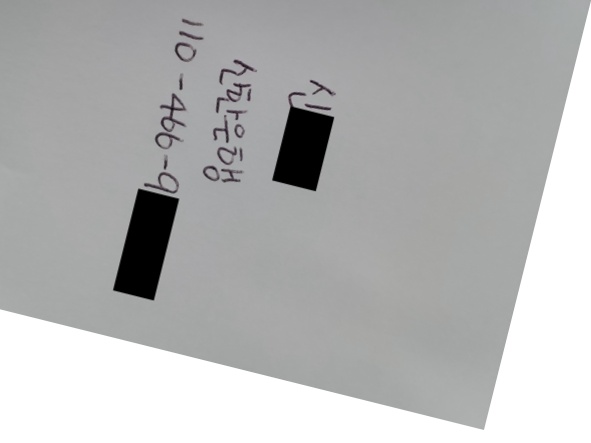 신
신한은행
110-466-9